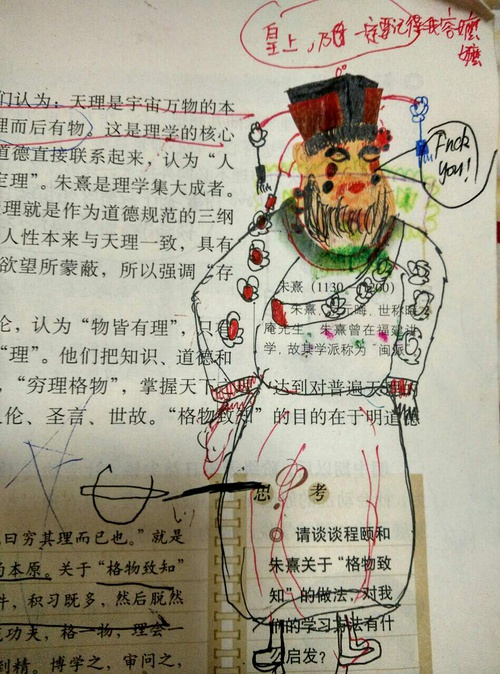 皇上,
一定要记得我容嬷
嬷
们认为:天理是宇宙万物的本
理而后有物。这是理学的核心
道德直接联系起来,认为“人
定理”。朱熹是理学集大成者。
理就是作为道德规范的三纲
人性本来与天理一致,具有
欲望所蒙蔽,所以强调“存
Fuck
you!
朱熹(1130—1200)
朱熹,字元晦,世称晦
庵先生。朱熹曾在福建讲
学,故其学派称为“闽派
论,认为“物皆有理”,只
“理”。他们把知识、道德和
,“穷理格物”,掌握天下 达到对普遍天
人伦、圣言、世故。“格物致知”的目的在于明道德
思考
请谈谈程颐和
朱熹关于“格物致
知”的做法,对我
们的学习方法有什
么启发?
曰穷其理而已也。”就是
的本原。关于“格物致知”
件,积习既多,然后脱然
功夫,格一物,理会一
到精。博学之,审问之,